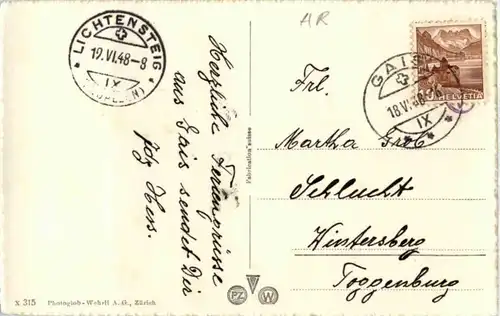 AR
LICHTENSTEIG
19.VI.48-8
IX
GAIS
18.VI.48
IX
HELVETIA
Herzliche Feriengrüsse
aus Gais sendet Dir
Hess.
Frl.
Martha Grob
Schlucht
Wintersberg
Toggenburg
Fabrikationsnahme
X 315 Photoglob-Wehrli A.G., Zürich
PZ W